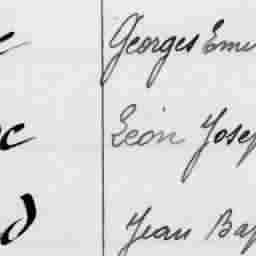 Georges Emi
Léon Josep
Jean Bap